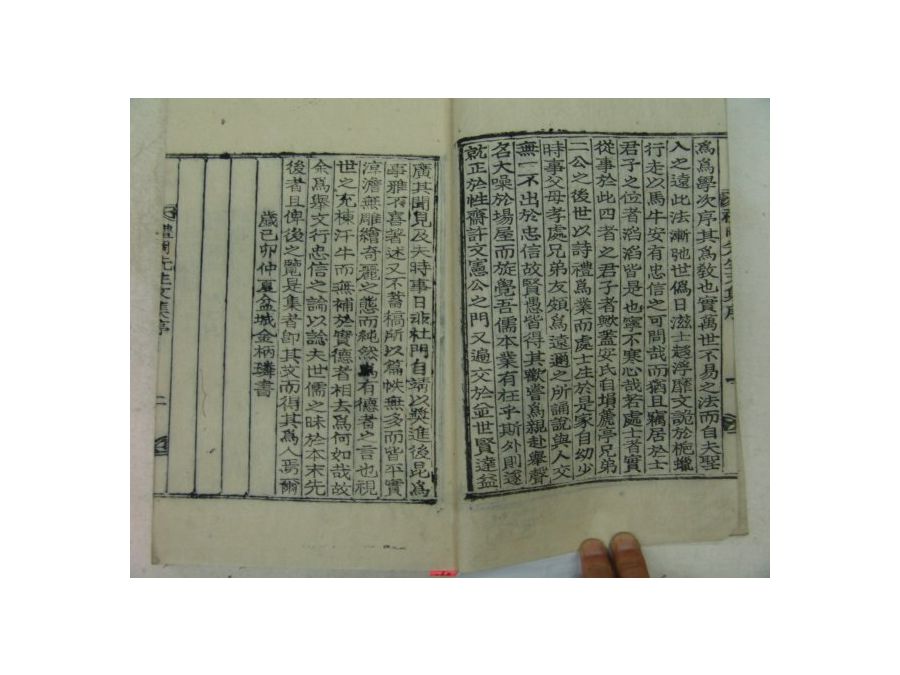 爲爲學次序其爲敎也實萬世不易之法而自夫聖
人之遠此法漸弛世僞日滋士趨浮靡文詭於梔蠟
行走以爲牛安有忠信之可問哉而猶且竊居於士
君子之位者滔滔皆是也寧不寒心哉若處士者實
從事於此四者之君子者歟蓋安氏自塤篪亭兄弟
二公之後世以詩禮爲業而處士生於是家自幼少
時事父母孝處兄弟友頗爲遠邇之所誦說與人交
無一不出於忠信故賢愚皆得其歡嘗爲親赴擧聲
名大噪於場屋而旋學吾儒本業有在乎斯外則遂
就正於性齋許文憲公之門又遍交於並世賢達益
廣其聞見及夫時事日非杜門自靖以奬進後昆爲
事雅不喜著述又不蓄稿所以篇帙無多而皆平實
淙澹無雕繪奇麗之態而純然爲有德者之言也視
世之充棟汗牛而無補於實德者相去爲何如哉故
余爲擧文行忠信之論以諗夫世儒之昧於本末先
後者且俾後之覽是集者卽其文而得其爲人焉爾
歲己卯仲夏盆城金柄璘書
先生文集序
二